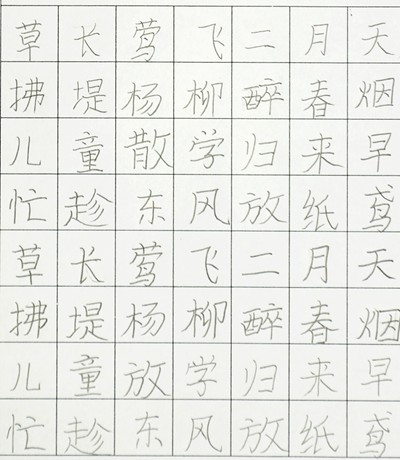 草长莺飞二月天
拂堤杨柳醉春烟
儿童散学归来早
忙趁东风放纸鸢
草长莺飞二月天
拂堤杨柳醉春烟
儿童放学归来早
忙趁东风放纸鸢